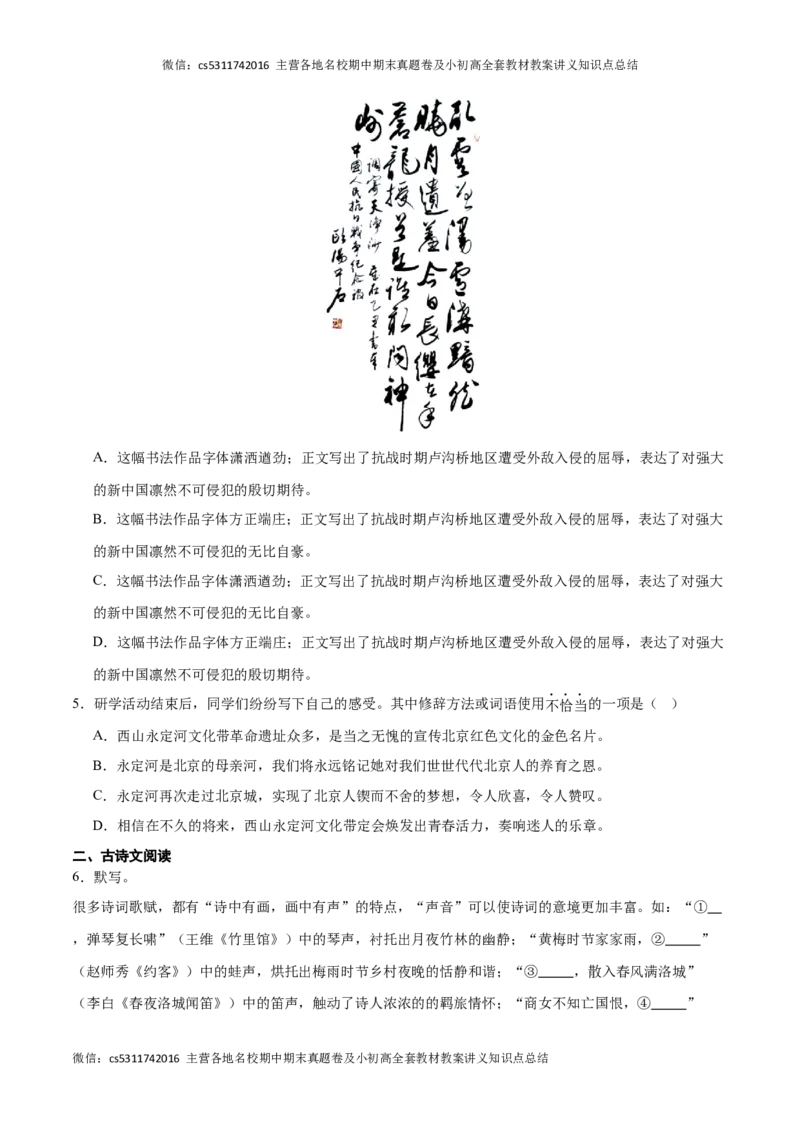 微信：cs5311742016 主营各地名校期中期末真题卷及小初高全套教材教案讲义知识点总结
晓月遗羞今日长缨在手
苍龙授首是谁敢问神
州
调寄天净沙
中国人民抗日战争纪念碑
欧阳中石
A．这幅书法作品字体潇洒遒劲；正文写出了抗战时期卢沟桥地区遭受外敌入侵的屈辱，表达了对强大
的新中国凛然不可侵犯的殷切期待。
B．这幅书法作品字体方正端庄；正文写出了抗战时期卢沟桥地区遭受外敌入侵的屈辱，表达了对强大
的新中国凛然不可侵犯的无比自豪。
C．这幅书法作品字体潇洒遒劲；正文写出了抗战时期卢沟桥地区遭受外敌入侵的屈辱，表达了对强大
的新中国凛然不可侵犯的无比自豪。
D．这幅书法作品字体方正端庄；正文写出了抗战时期卢沟桥地区遭受外敌入侵的屈辱，表达了对强大
的新中国凛然不可侵犯的殷切期待。
5．研学活动结束后，同学们纷纷写下自己的感受。其中修辞方法或词语使用不恰当的一项是（ ）
A．西山永定河文化带革命遗址众多，是当之无愧的宣传北京红色文化的金色名片。
B．永定河是北京的母亲河，我们将永远铭记她对我们世世代代北京人的养育之恩。
C．永定河再次走过北京城，实现了北京人锲而不舍的梦想，令人欣喜，令人赞叹。
D．相信在不久的将来，西山永定河文化带定会焕发出青春活力，奏响迷人的乐章。
二、古诗文阅读
6．默写。
很多诗词歌赋，都有“诗中有画，画中有声”的特点，“声音”可以使诗词的意境更加丰富。如：“①__
，弹琴复长啸”（王维《竹里馆》）中的琴声，衬托出月夜竹林的幽静；“黄梅时节家家雨，②_____”
（赵师秀《约客》）中的蛙声，烘托出梅雨时节乡村夜晚的恬静和谐；“③_____，散入春风满洛城”
（李白《春夜洛城闻笛》）中的笛声，触动了诗人浓浓的的羁旅情怀；“商女不知亡国恨，④_____”
微信：cs5311742016 主营各地名校期中期末真题卷及小初高全套教材教案讲义知识点总结